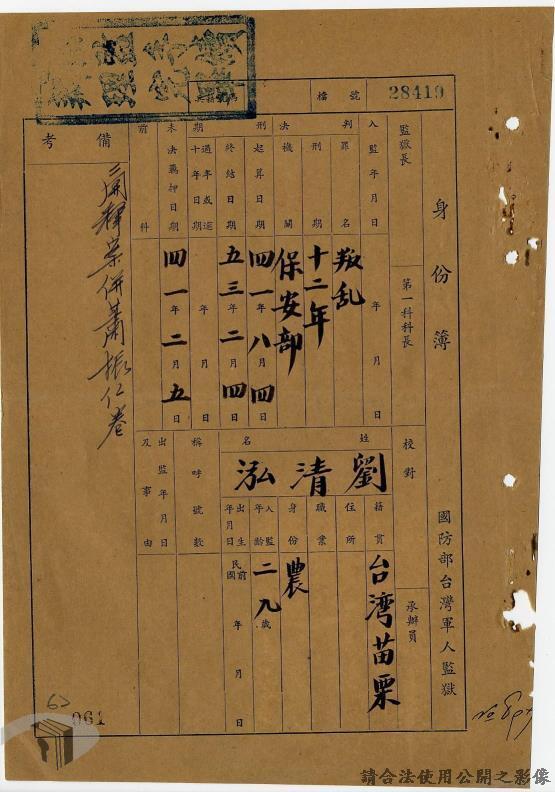 身份簿
國防部台灣軍人監獄
檔號 28419
監獄長
第一科科長
校對
承辦員
入監年月日 年 月 日
判決
罪名 叛乱
刑期 十二年
機關 保安部
刑期
起算日期 四一年八月四日
終結日期 五三年二月四日
日期 年 月 日
未決羈押日期 四一年二月五日
前科
備考
姓名 劉清泓
籍貫 台湾苗栗
住所
職業
身份 農
入監年齡 二九歲
出生年月日 民前國 年 月 日
稱呼號數
出監年月日及事由
併蕭振仁卷
061
請合法使用公開之影像